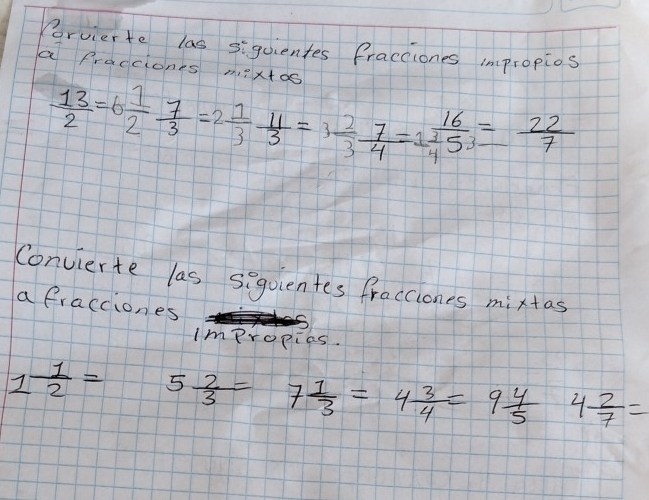 Convierte las siguientes fracciones impropios
a fracciones mixtos
13/2 = 6 1/2 7/3 = 2 1/3 11/3 = 3 2/3 7/4 = 1 3/4 16/5 = 3 22/7
Convierte las siguientes fracciones mixtas
a fracciones
impropias.
1 1/2 = 5 2/3 = 7 1/3 = 4 3/4 = 9 4/5 4 2/7 =